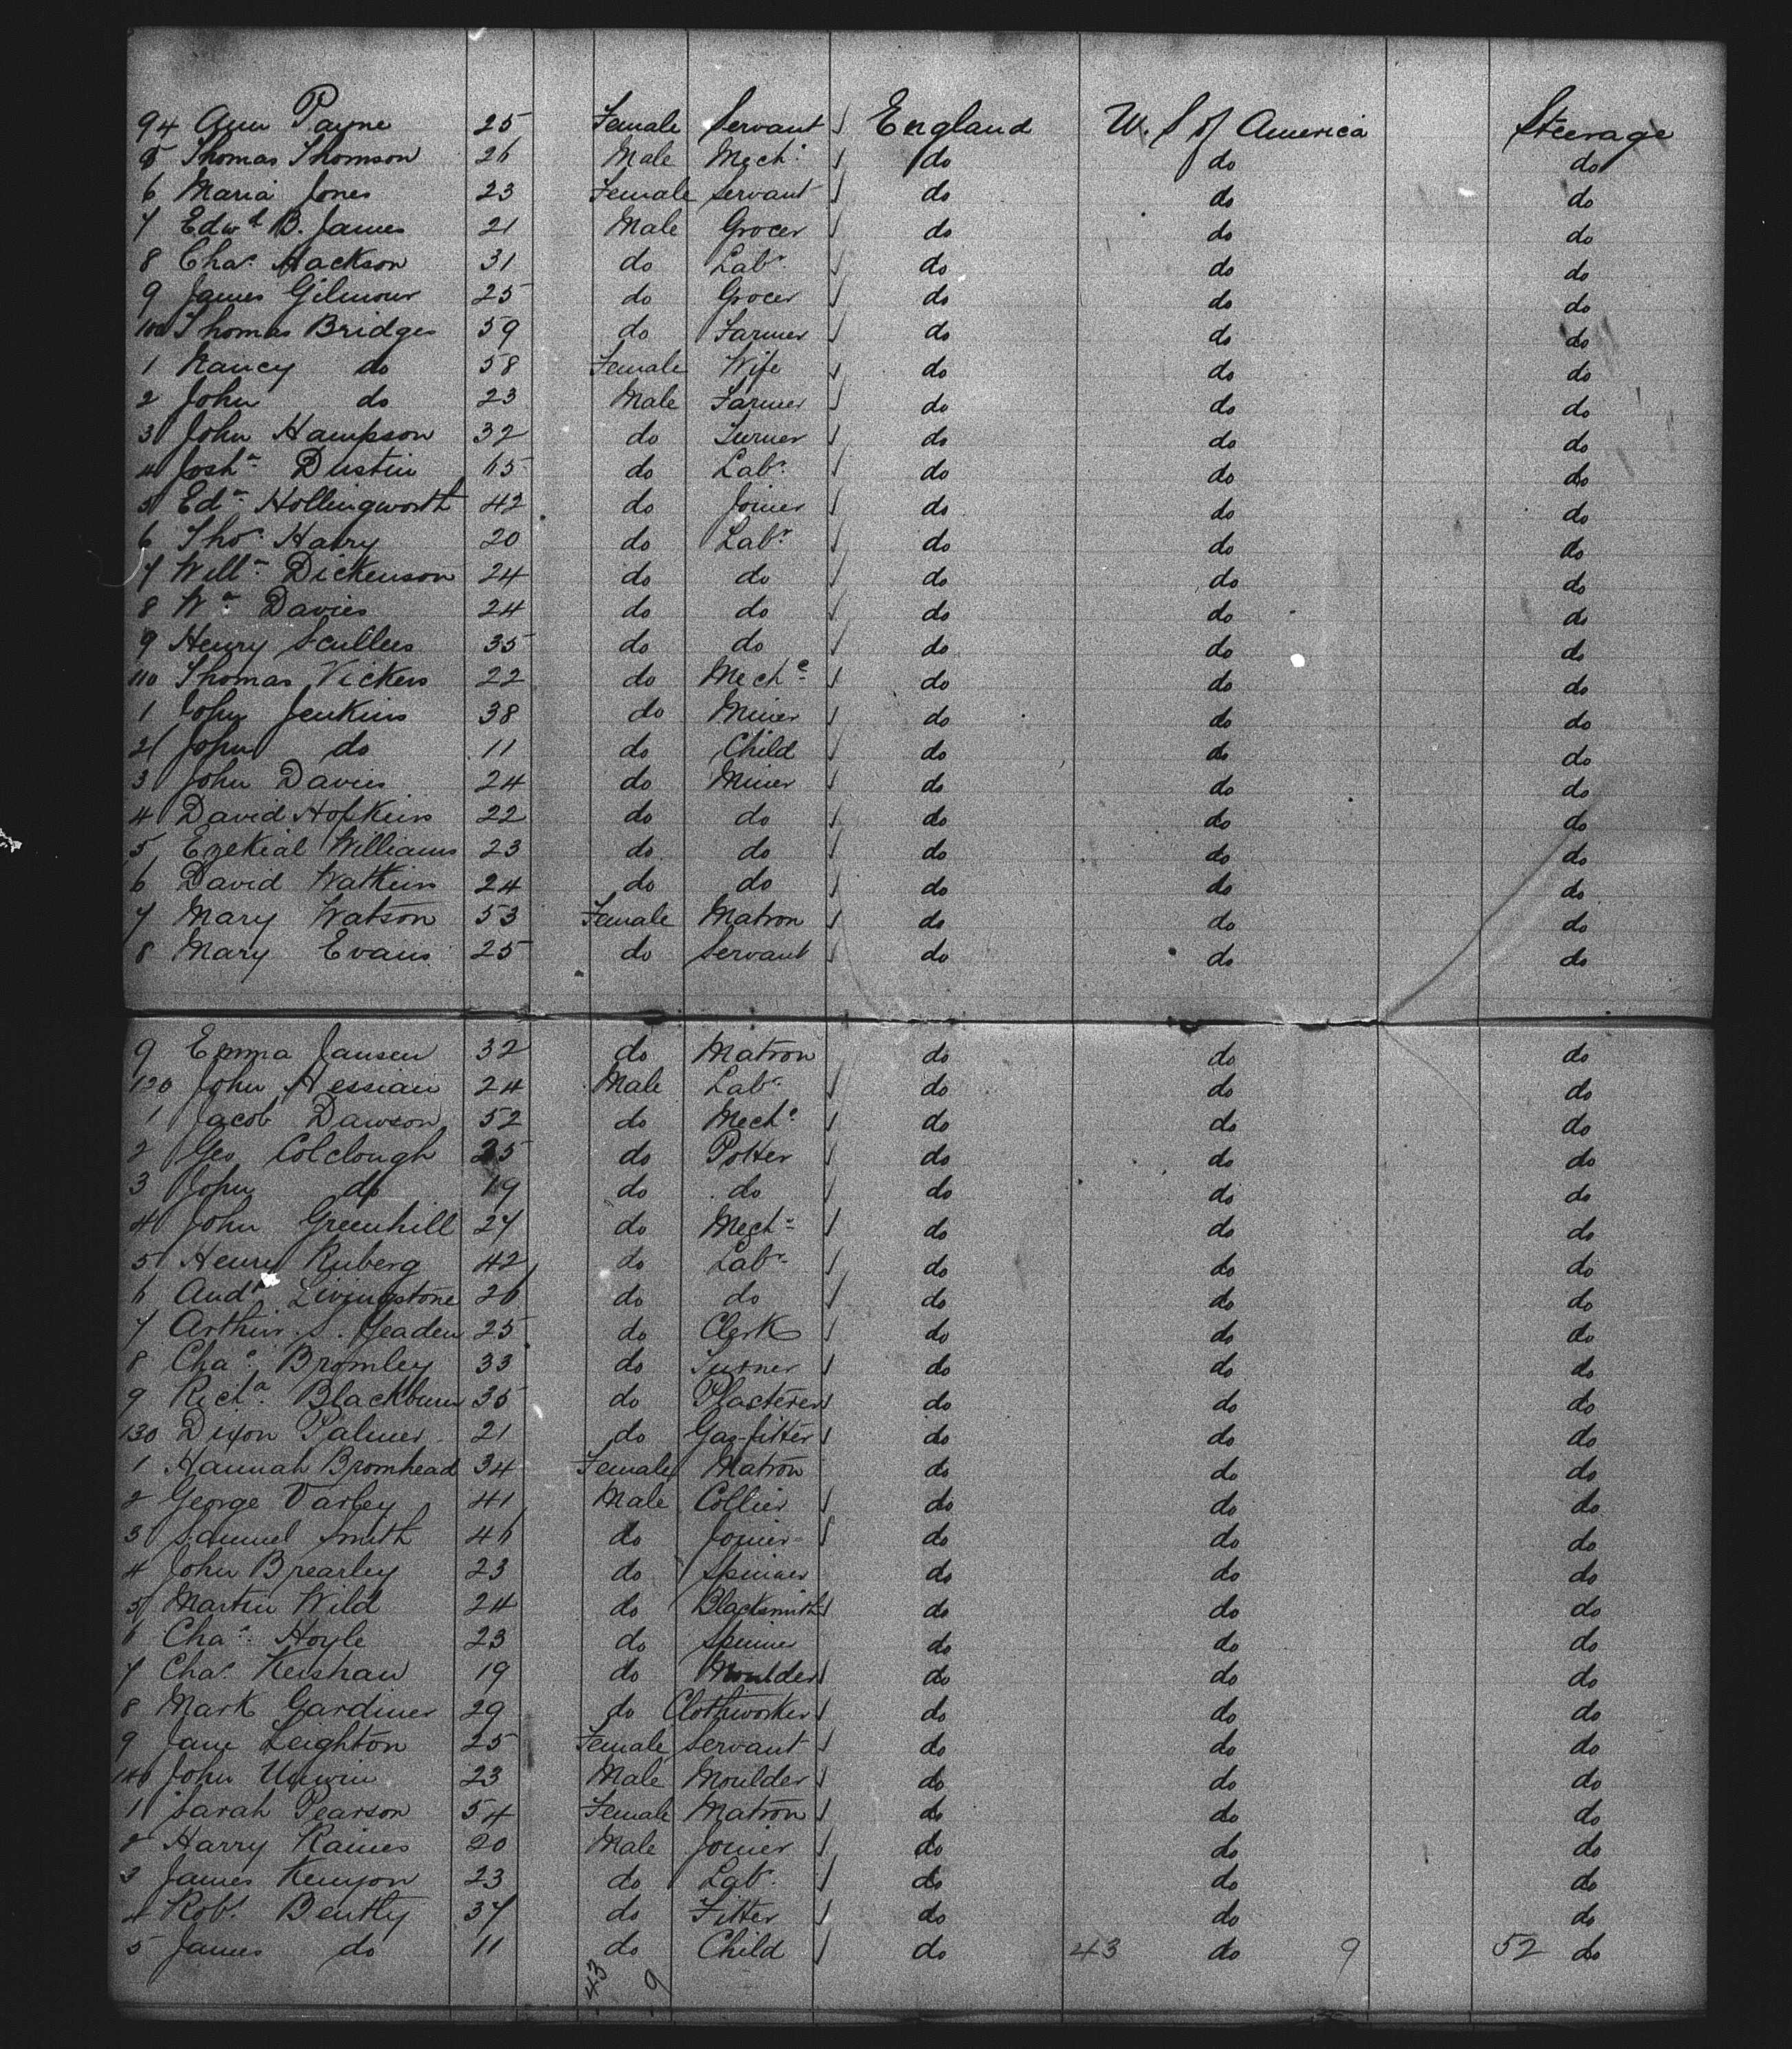 94 Ann Payne 25 Female Servant England U. S of America Steerage
5 Thomas Thomson 26 Male Mech. do do do
6 Maria Jones 23 Female Servant do do do
7 Edwd B. James 21 Male Grocer do do do
8 Chas. Hackson 31 do Labr. do do do
9 James Gilmour 25 do Grocer do do do
100 Thomas Bridges 59 do Farmer do do do
1 Nancy do 58 Female Wife do do do
2 John do 23 Male Farmer do do do
3 John Hampson 32 do Turner do do do
4 Josha Dustin 65 do Labr. do do do
5 Edn. Hollingworth 42 do Joiner do do do
6 Thos. Harry 20 do Labr. do do do
7 Willm Dickenson 24 do do do do do
8 Wm Davies 24 do do do do do
9 Henry 35 do do do do do
110 Thomas Vickers 22 do Mechc do do do
1 John Jenkins 38 do Miner do do do
2 John do 11 do Child do do do
3 John Davies 24 do Miner do do do
4 David Hopkins 22 do do do do do
5 Ezekial Williams 23 do do do do do
6 David Watkins 24 do do do do do
7 Mary Watson 53 Female Matron do do do
8 Mary Evans 25 do Servant do do do
9 Emma Jansen 32 do Matron do do do
120 John Hessian 24 Male Labr. do do do
1 Jacob Dawson 52 do Mechc do do do
2 Geo Colclough 25 do Potter do do do
3 John do 19 do do do do do
4 John Greenhill 27 do Mechc do do do
5 Henry Ruberg 42 do Labr. do do do
6 Andw Livingstone 26 do do do do do
7 Arthur S. Yeaden 25 do Clerk do do do
8 Chas. Bromley 33 do Turner do do do
9 Richd. Blackburn 35 do Plasterer do do do
130 Dixon Palmer 21 do Gas-fitter do do do
1 Hannah Bromhead 34 Female Matron do do do
2 George Varley 41 Male Collier do do do
3 Samuel Smith 46 do Joiner do do do
4 John Brearley 23 do Spinner do do do
5 Martin Wild 24 do Blacksmith do do do
6 Chas. Hoyle 23 do Spinner do do do
7 Chas. Kershaw 19 do Moulder do do do
8 Mark Gardiner 29 do Clothworker do do do
9 Jane Leighton 25 Female Servant do do do
140 John Unwin 23 Male Moulder do do do
1 Sarah Pearson 54 Female Matron do do do
2 Harry Raines 20 Male Joiner do do do
3 James Kenyon 23 do Labr. do do do
4 Robt. Bently 37 do Fitter do do do
5 James do 11 do Child do 43 do 9 52 do
43 9